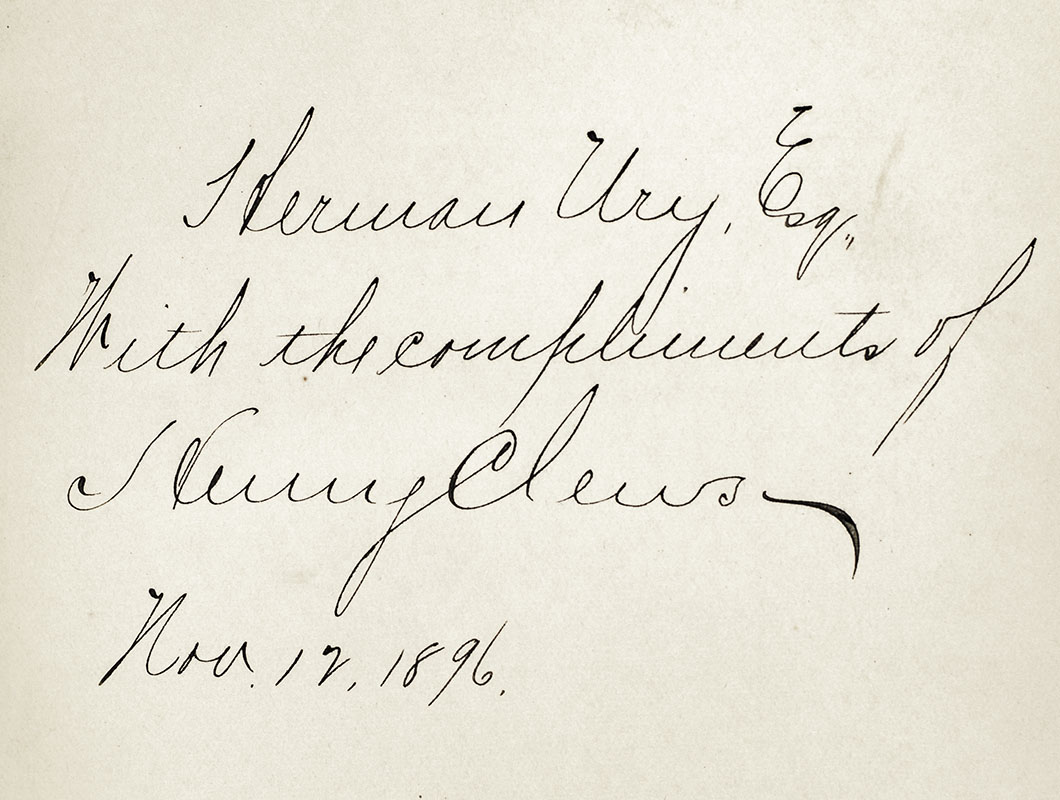 Herman Ury, Esq.,
With the compliments of
Henry Clews
Nov. 12, 1896.